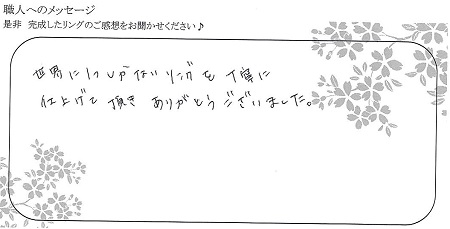 職人へのメッセージ
是非 完成したリングのご感想をお聞かせください♪
世界に1つしかないリングを丁寧に
仕上げて頂き ありがとうございました。